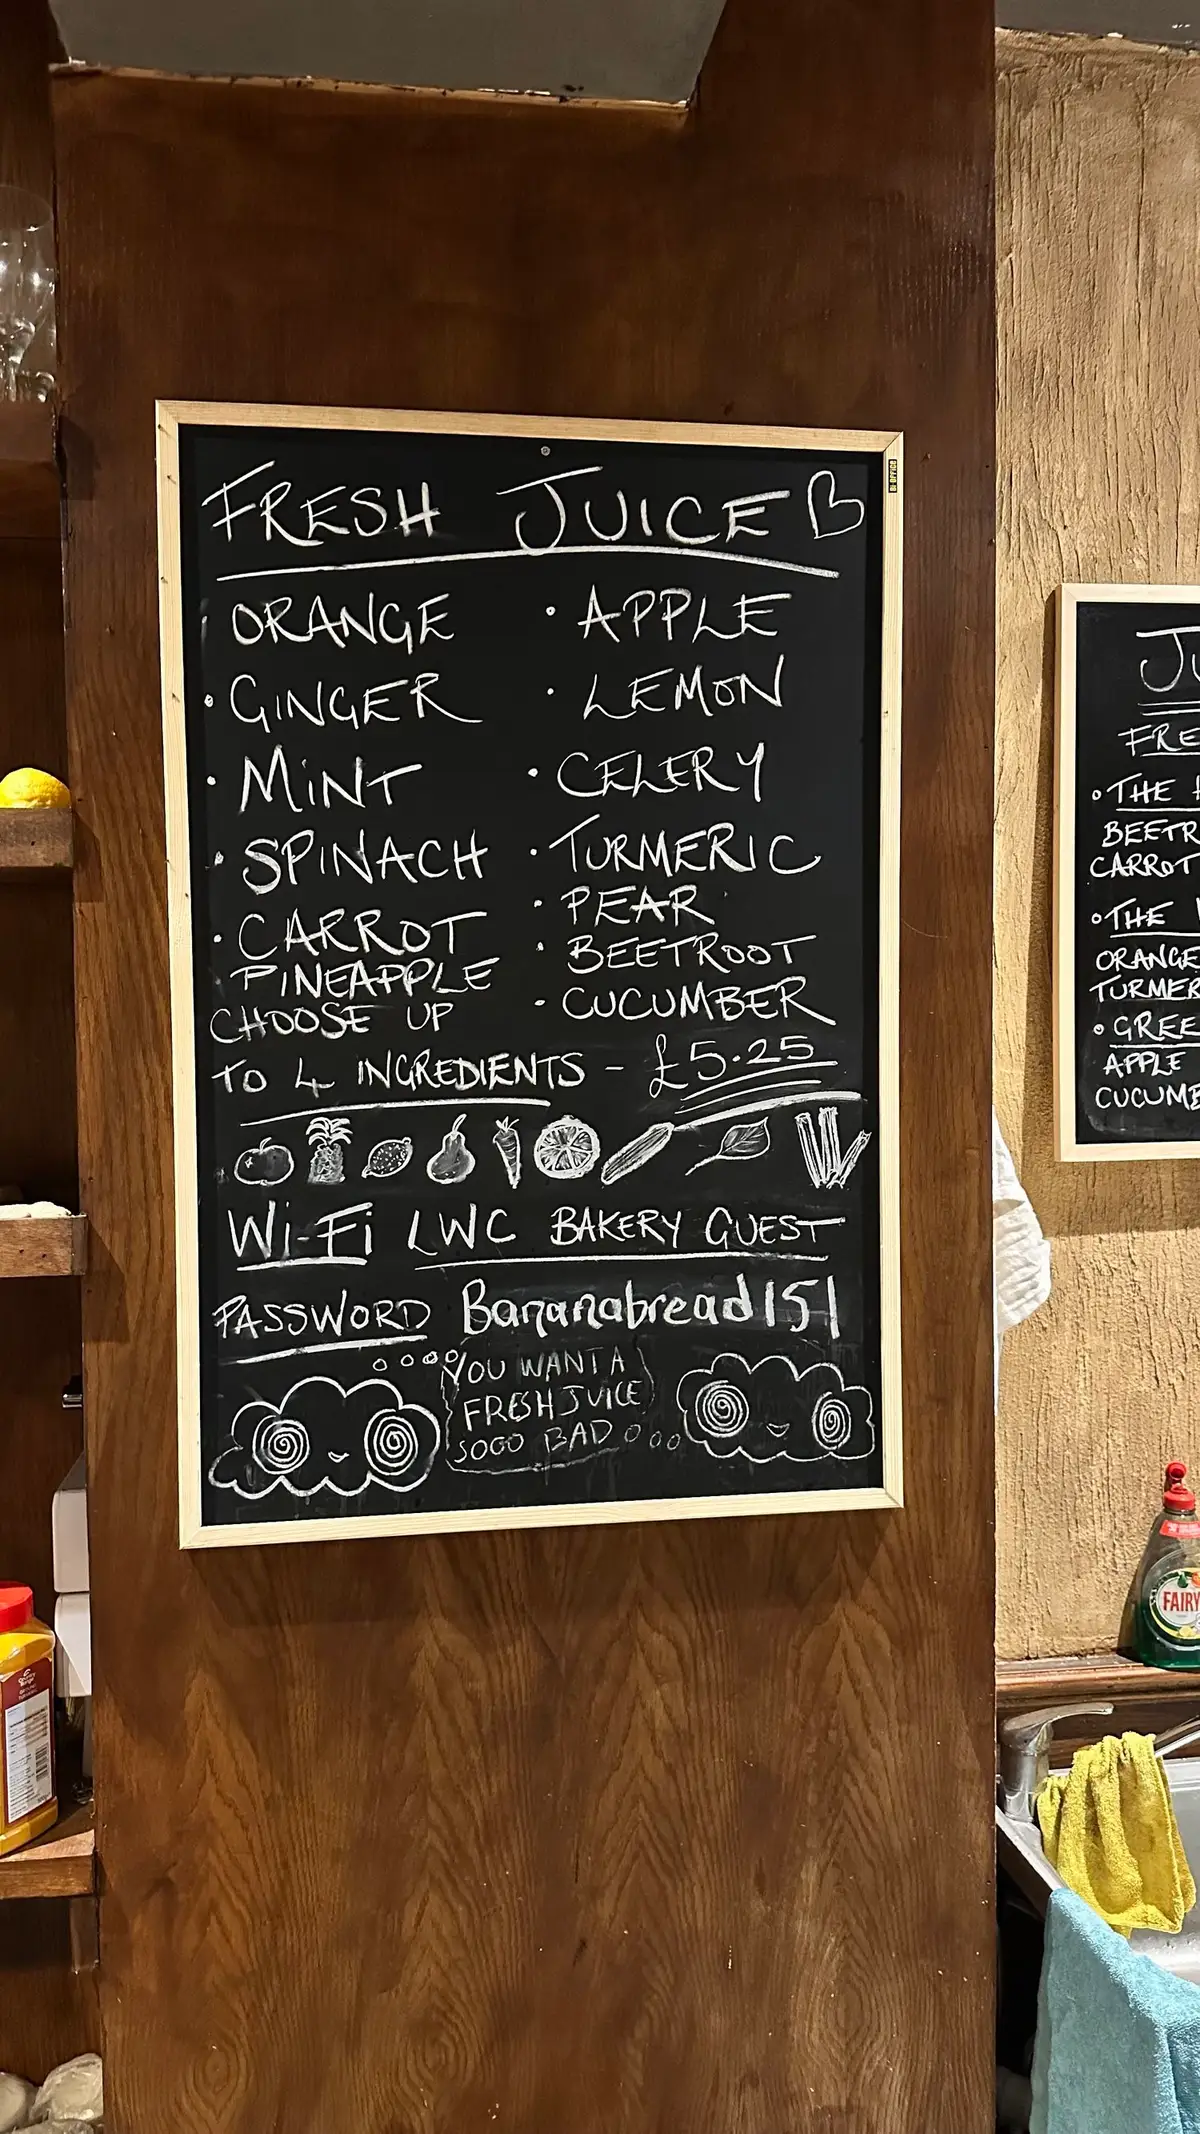 FRESH JUICE
· ORANGE
· GINGER
· MINT
· SPINACH
· CARROT
PINEAPPLE
· APPLE
· LEMON
· CELERY
· TURMERIC
· PEAR
· BEETROOT
· CUCUMBER
CHOOSE UP
TO 4 INGREDIENTS - £5.25
Wi-Fi LWC BAKERY GUEST
PASSWORD Bananabread151
YOU WANT A
FRESH JUICE
SOOO BAD
FRE
• THE
BEETR
CARROT
• THE
ORANGE
TURMER
• GREE
APPLE
CUCUMB
FAIRY